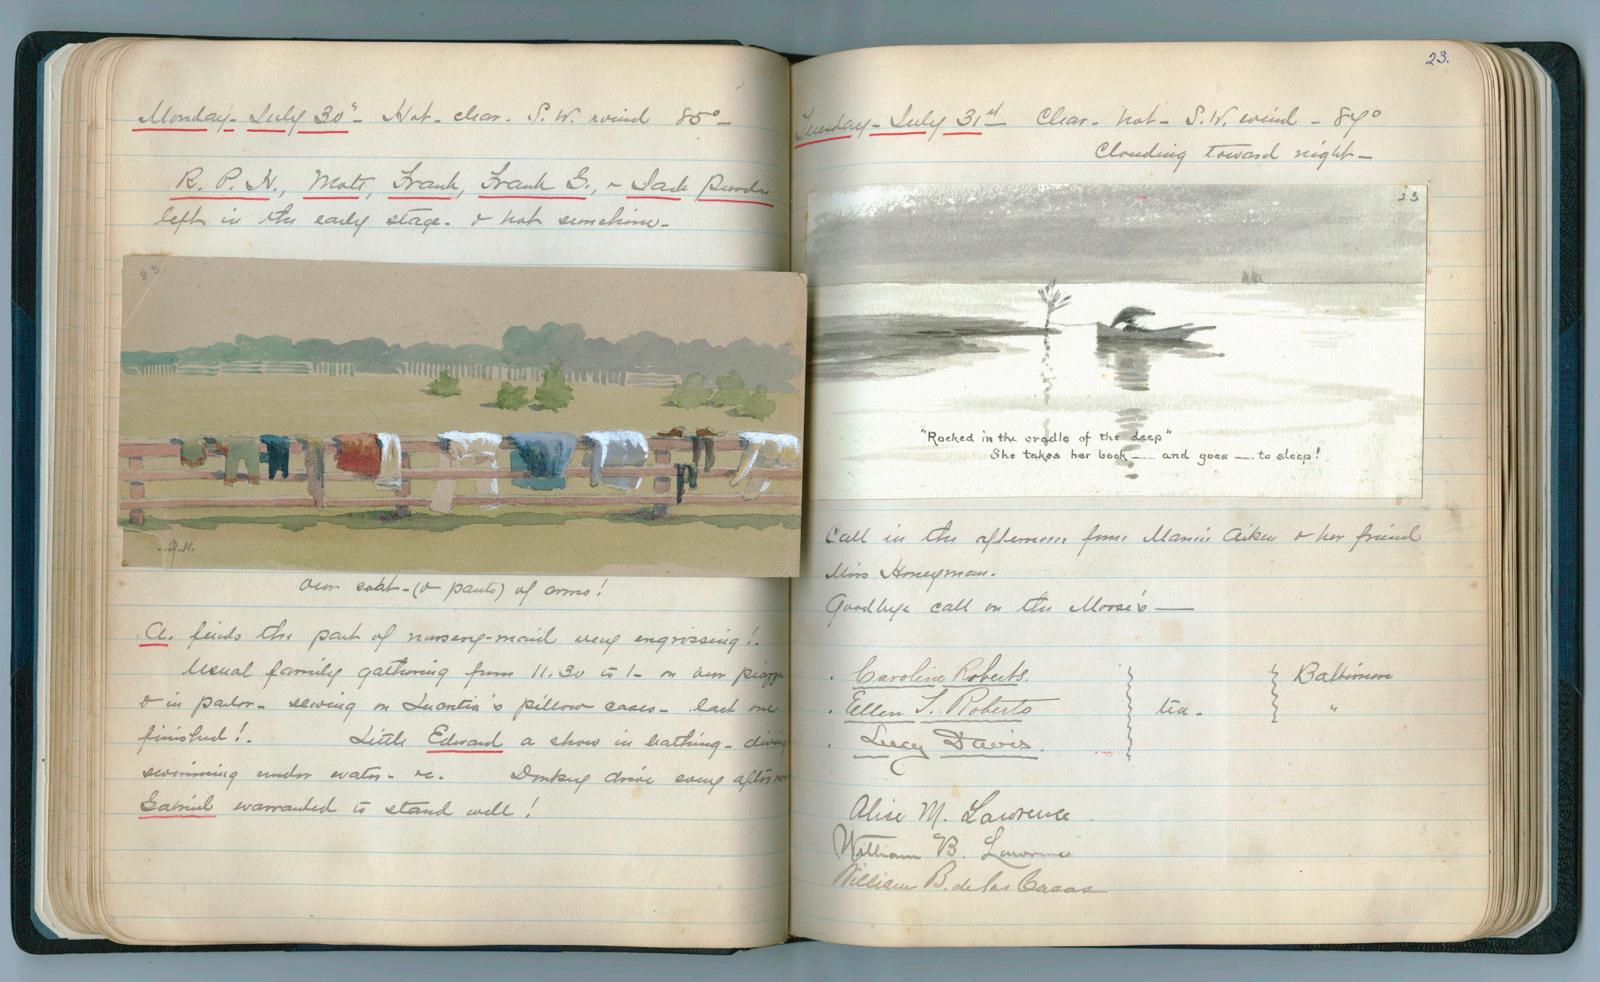 Monday - July 30" - Hot - clear - S. W. wind 85° -
R. P. H., Mott, Frank, Frank G., & Jack Purdon
left in the early stage - & hot sunshine -
our coat - (& pants) of arms!
A. finds the part of nursery-maid very engrossing!
Usual family gathering from 11.30 to 1 - on our piazza
& in parlor - sewing on pillow cases - last one
finished! Little Edward a show in bathing - diving
swimming under water - &c. Donkey drive every
Gabriel warranted to stand well!
23.
Tuesday - July 31st Clear - hot - S. W. wind - 84°
Clouding toward night -
23
"Rocked in the cradle of the deep"
She takes her book — and goes — to sleep!
Call in the afternoon from Aiken & her friend
Miss Honeyman.
Goodbye call on the Morse's —
Caroline Roberts. Baltimore
Ellen S. Roberts tea - "
Lucy Davis.
Alise M. Lawrence
William B. Lawrence
William B. de las Casas